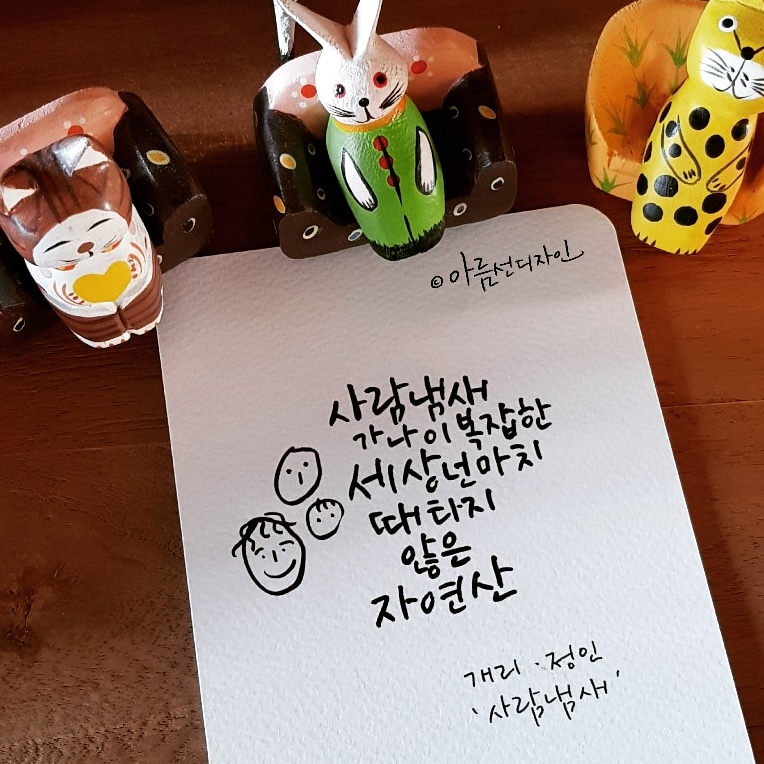 © 아름선디자인
사람냄새
가 나 이 복잡한
세상 넌 마치
때 타지
않은
자연산
개리 · 정인
'사람냄새'